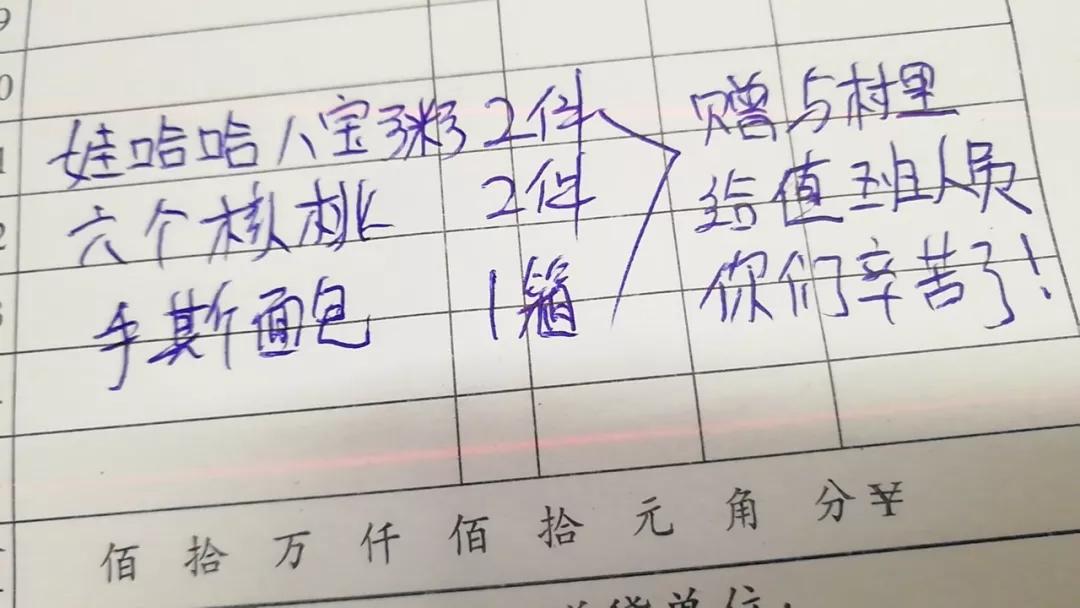 娃哈哈八宝粥 2件 赠与村里
六个核桃 2件 给值班人员
手撕面包 1箱 你们辛苦了!
佰拾万仟佰拾元角分¥